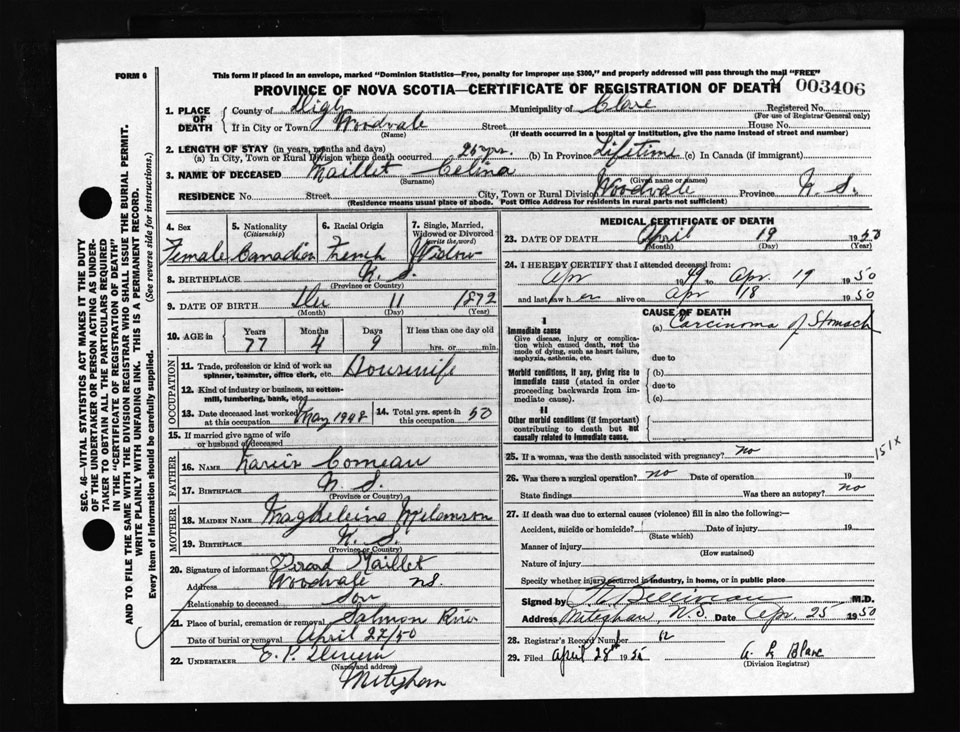 FORM 6
This form if placed in an envelope, marked "Dominion Statistics—Free, penalty for improper use $300," and properly addressed will pass through the mail "FREE"
PROVINCE OF NOVA SCOTIA—CERTIFICATE OF REGISTRATION OF DEATH 003406
1. PLACE OF DEATH County of Digby Municipality of Clare Registered No.
(For use of Registrar General only)
If in City or Town Woodvale Street House No.
(Name) (If death occurred in a hospital or institution, give the name instead of street and number)
2. LENGTH OF STAY (in years, months and days)
(a) In City, Town or Rural Division where death occurred 25 yrs. (b) In Province Lifetime (c) In Canada (if immigrant)
3. NAME OF DECEASED Maillet Celina
(Surname) (Given name or names)
RESIDENCE No. Street City, Town or Rural Division Woodvale Province N. S.
(Residence means usual place of abode. Post Office Address for residents in rural parts not sufficient)
4. Sex 5. Nationality (Citizenship) 6. Racial Origin 7. Single, Married, Widowed or Divorced (write the word)
Female Canadian French Widow
8. BIRTHPLACE N. S.
(Province or Country)
9. DATE OF BIRTH 11 1872
(Month) (Day) (Year)
10. AGE in Years Months Days If less than one day old
77 4 9 hrs. or min.
OCCUPATION
11. Trade, profession or kind of work as spinner, teamster, office clerk, etc. Housewife
12. Kind of industry or business, as cotton-mill, lumbering, bank, etc.
13. Date deceased last worked at this occupation May 1948 14. Total yrs. spent in this occupation 50
15. If married give name of wife or husband of deceased
FATHER
16. NAME Comeau
17. BIRTHPLACE N. S.
(Province or Country)
MOTHER
18. MAIDEN NAME Magdeleine Melanson
19. BIRTHPLACE N. S.
(Province or Country)
20. Signature of informant Maillet
Address Woodvale N.S.
Relationship to deceased Son
21. Place of burial, cremation or removal Salmon River
Date of burial or removal April 22/50
22. UNDERTAKER E. P.
(Name and address)
Meteghan
MEDICAL CERTIFICATE OF DEATH
23. DATE OF DEATH April 19 1950
(Month) (Day) (Year)
24. I HEREBY CERTIFY that I attended deceased from:
Apr 1949 to Apr. 19 1950
and last saw h er alive on Apr 18 1950
CAUSE OF DEATH
I
Immediate cause (a) Carcinoma of Stomach
Give disease, injury or complication which caused death, not the mode of dying, such as heart failure, asphyxia, asthenia, etc.
due to
Morbid conditions, if any, giving rise to immediate cause (stated in order proceeding backwards from immediate cause).
(b)
due to
(c)
II
Other morbid conditions (if important) contributing to death but not causally related to immediate cause.
25. If a woman, was the death associated with pregnancy? no
151X
26. Was there a surgical operation? no Date of operation 19
State findings Was there an autopsy? no
27. If death was due to external causes (violence) fill in also the following:—
Accident, suicide or homicide? Date of injury 19
(State which)
Manner of injury
(How sustained)
Nature of injury
Specify whether injury occurred in industry, in home, or in public place
Signed by Belliveau M.D.
Address Meteghan, N.S. Date Apr. 25 1950
28. Registrar's Record Number 12
29. Filed April 28th 1950 A. L. Blanc
(Division Registrar)
SEC. 46—VITAL STATISTICS ACT MAKES IT THE DUTY
OF THE UNDERTAKER OR PERSON ACTING AS UNDER-
TAKER TO OBTAIN ALL THE PARTICULARS REQUIRED
IN THE "CERTIFICATE OF REGISTRATION OF DEATH"
AND TO FILE THE SAME WITH THE DIVISION REGISTRAR WHO SHALL ISSUE THE BURIAL PERMIT.
WRITE PLAINLY WITH UNFADING INK. THIS IS A PERMANENT RECORD.
Every item of information should be carefully supplied. (See reverse side for instructions.)